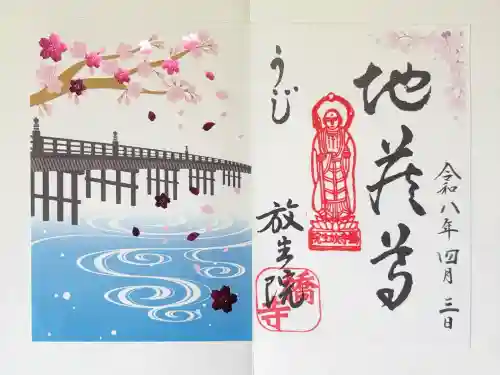 令和八年 四月 三日
地蔵尊
うじ
放生院
橋寺